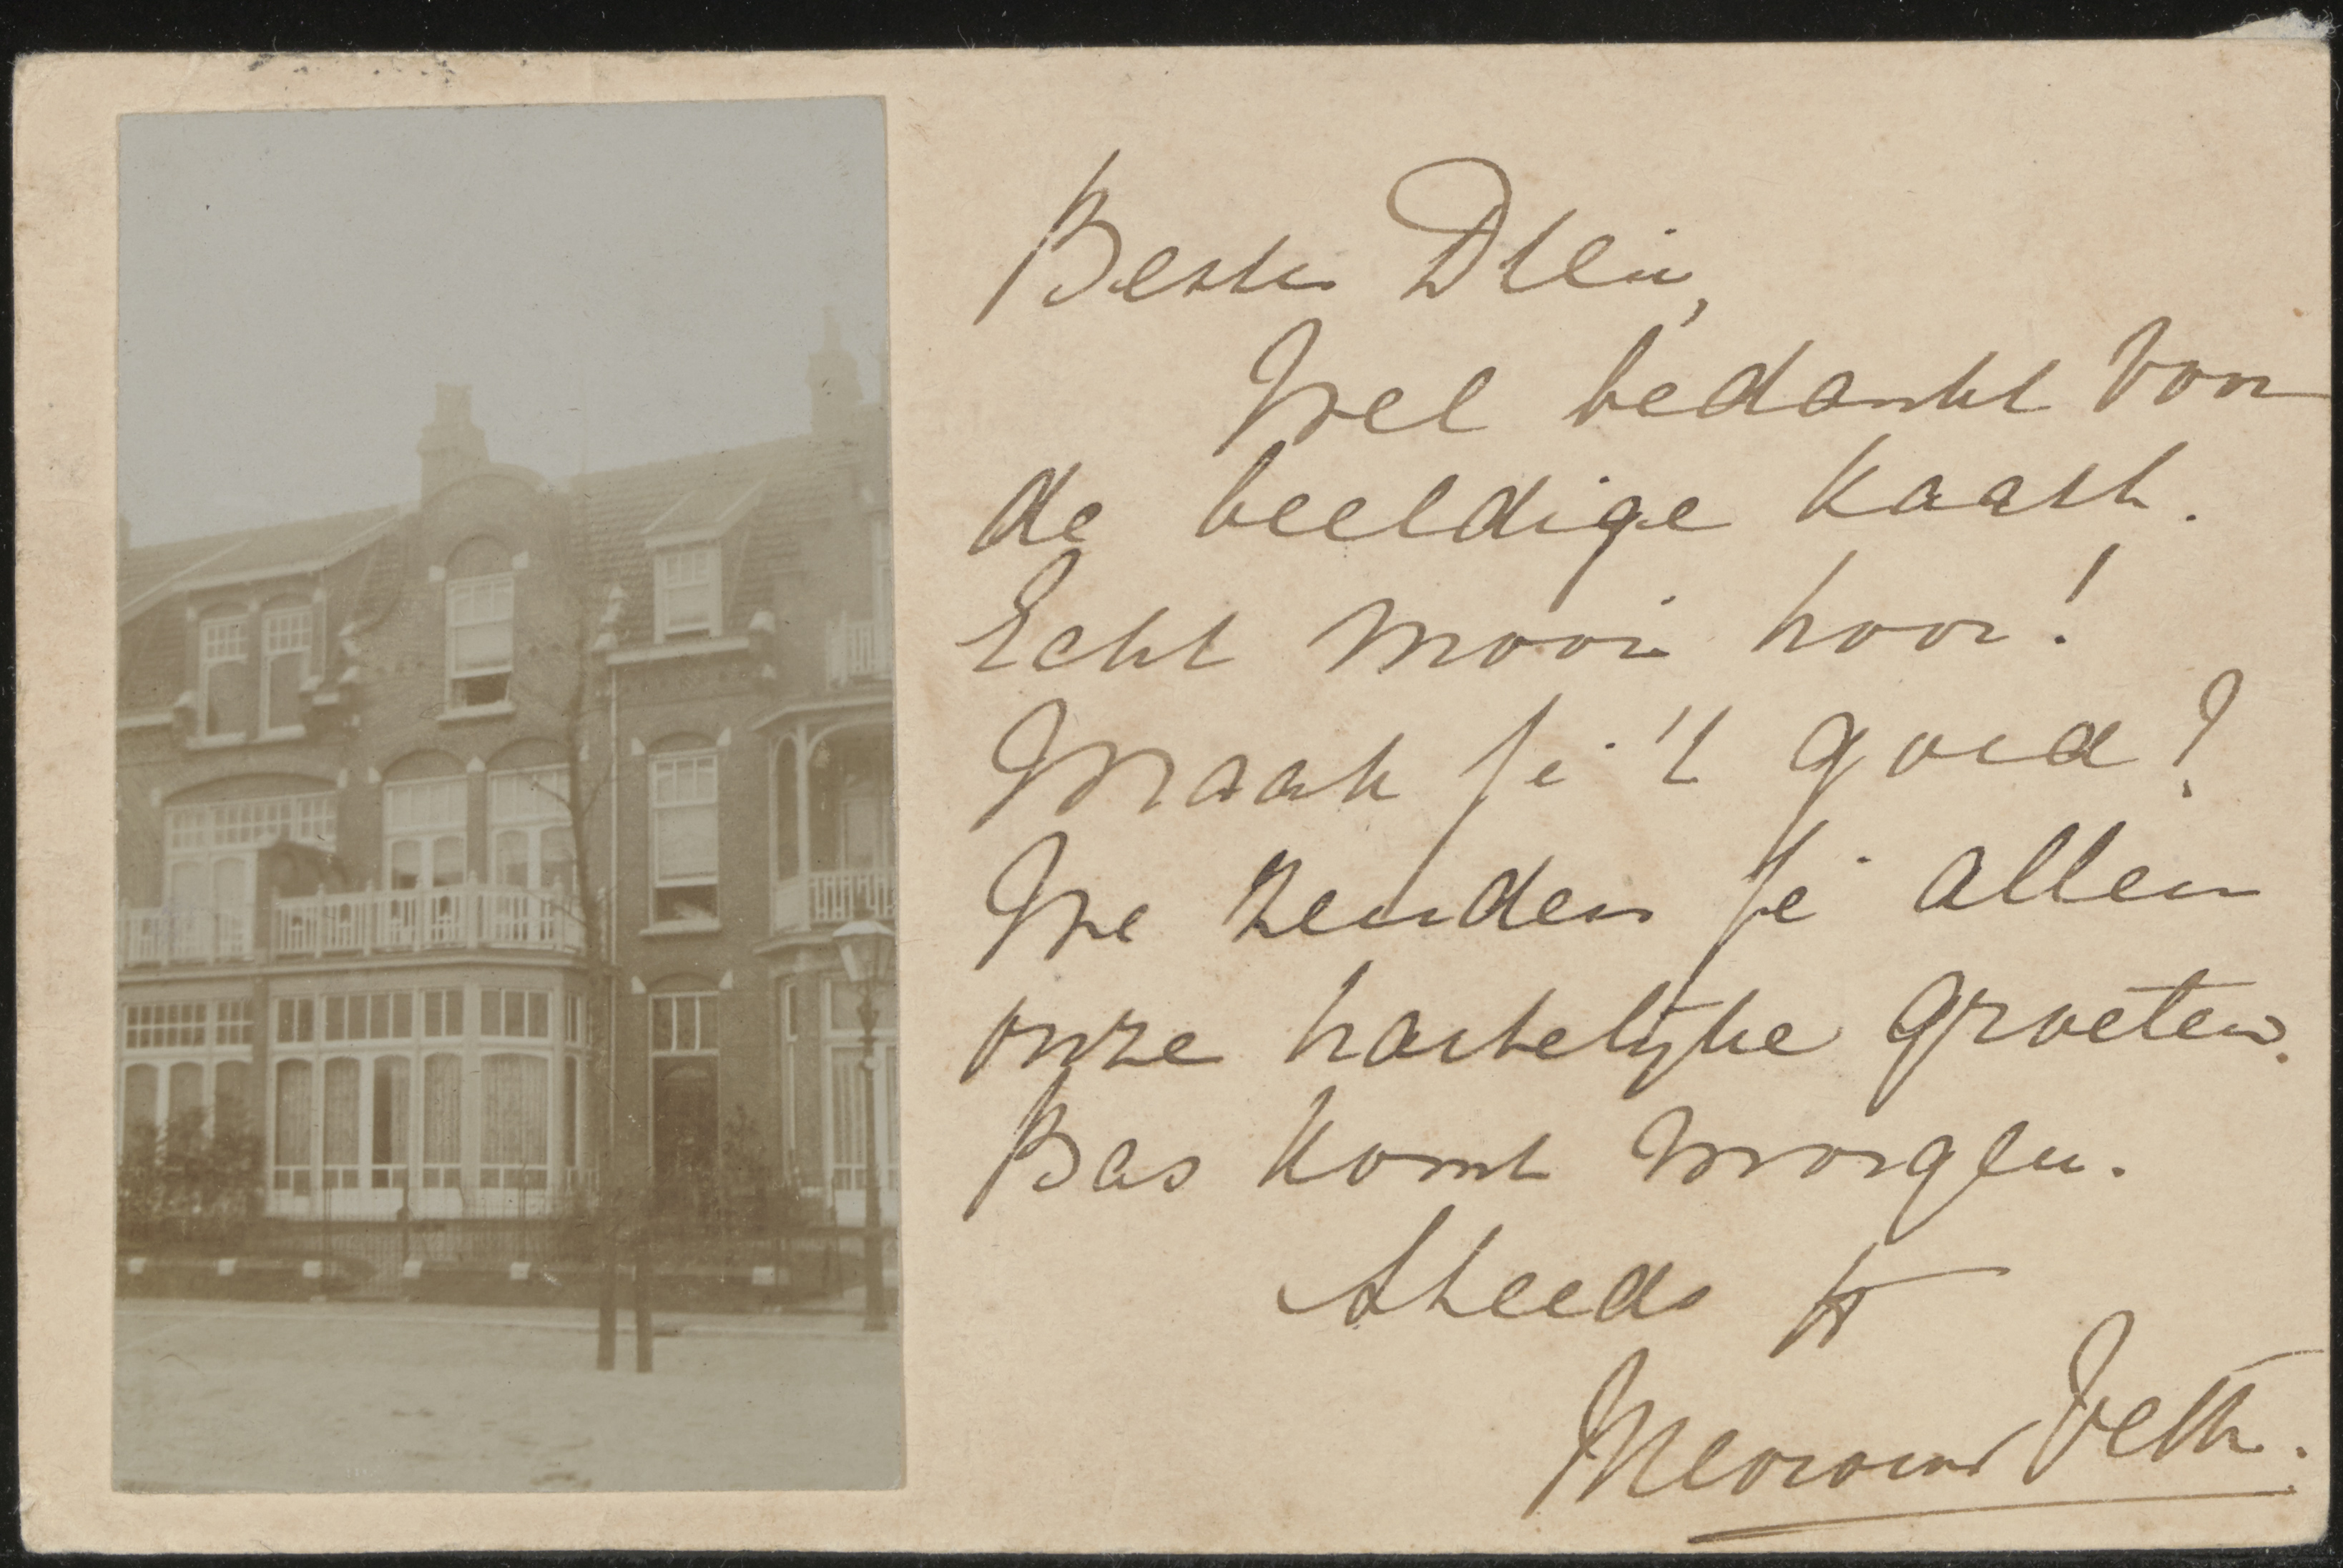 Beste
Wel bedankt voor
de beeldige kaart.
Echt mooi hoor!
Maak je 't goed?
We zenden je allen
onze hartelijke groeten.
Bas komt morgen.
Steeds
Mevrouw Veth.